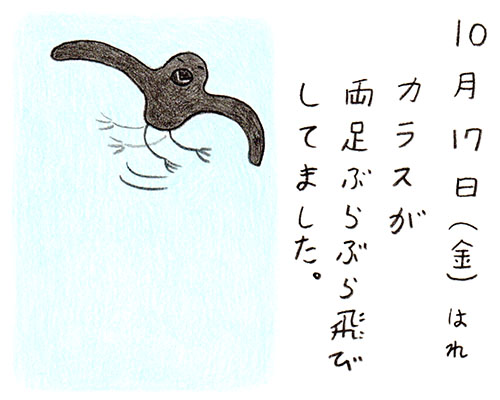 10月17日（金）はれ
カラスが
両足ぶらぶら飛び
してました。